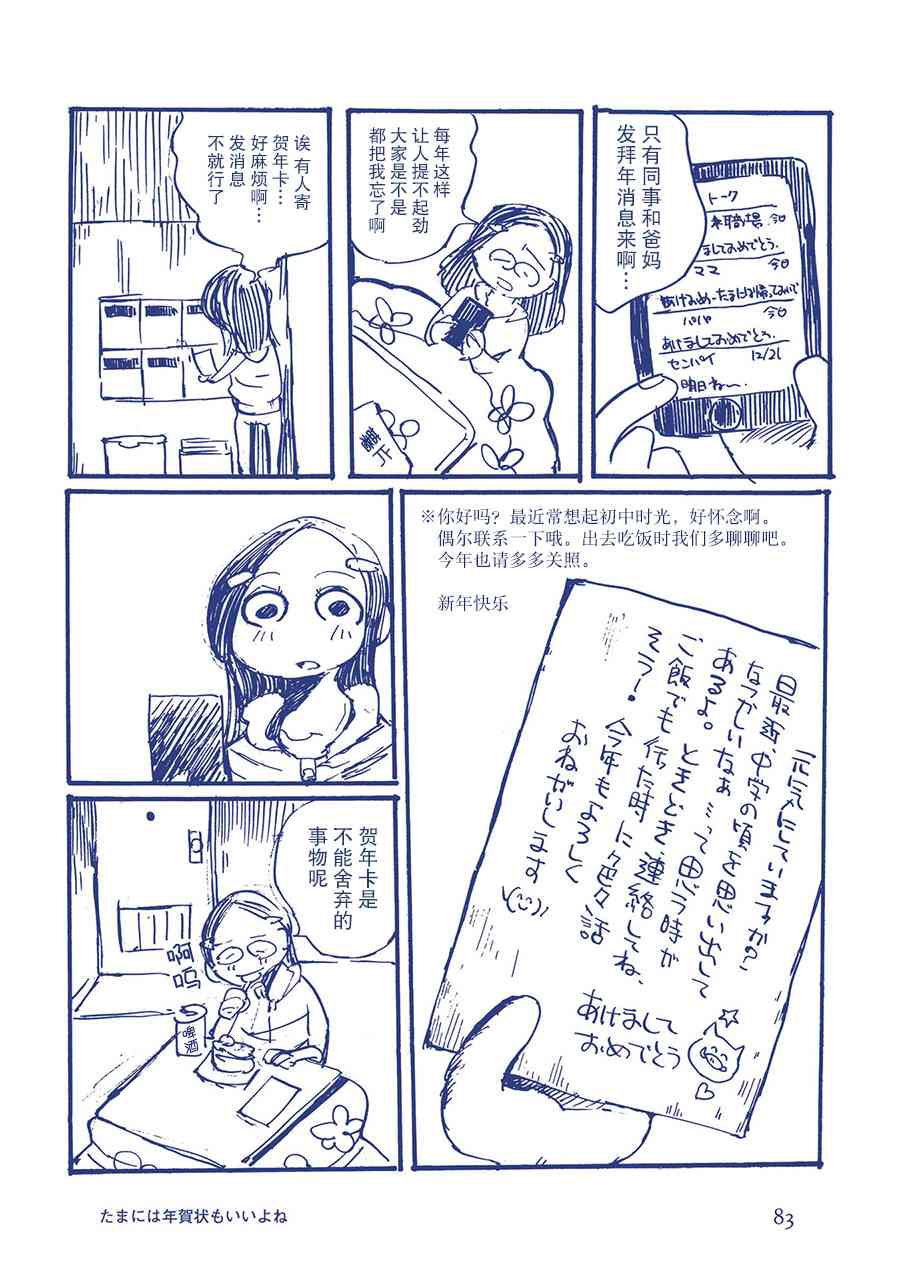 只有同事和爸妈
发拜年消息来啊…
トーク
職場 今日
ましておめでとう.
ママ 今日
あけおめ~たまには帰っておいで
パパ 今日
あけましておめでとう.
センパイ 12/21
明日ね〜.
每年这样
让人提不起劲
大家是不是
都把我忘了啊
薯片
诶 有人寄
贺年卡…
好麻烦啊…
发消息
不就行了
※你好吗？最近常想起初中时光，好怀念啊。
偶尔联系一下哦。出去吃饭时我们多聊聊吧。
今年也请多多关照。
新年快乐
元気にしていますか?
最近、中学の頃を思い出して
なつかしいなぁ…って思う時が
あるよ。ときどき連絡してね、
ご飯でも行った時に色々話
そう!今年もよろしく
おねがいします
あけまして
おめでとう
贺年卡是
不能舍弃的
事物呢
啊
呜
啤酒
たまには年賀状もいいよね
83